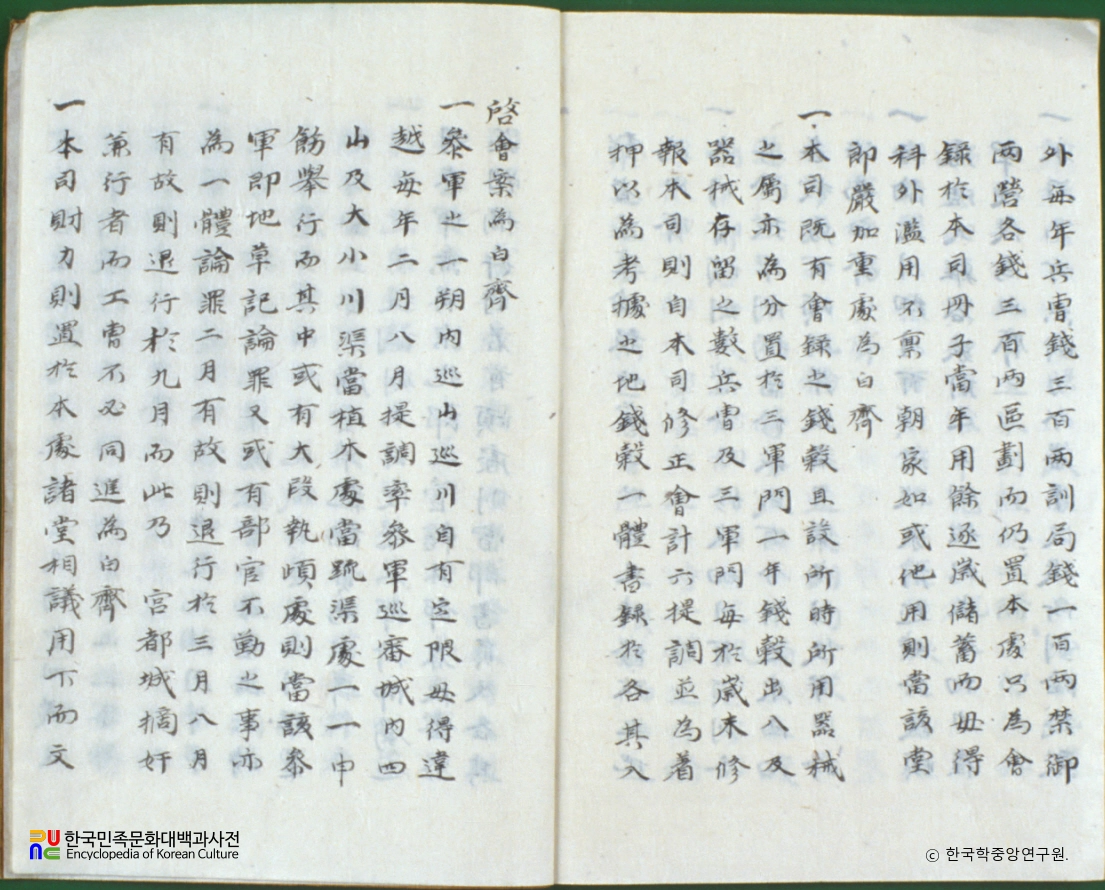 外每年兵曹錢三百兩訓局錢一百兩禁御
兩營各錢三百兩區劃而仍置本處只爲會
錄於本司冊子當年用餘逐歲儲蓄而毋得
科外濫用不稟朝家如或他用則當該堂
郞嚴加重處爲白齊
一本司旣有會錄之錢穀且設所時所用器械
之屬亦爲分置於三軍門一年錢穀出入及
器械存留之數兵曹及三軍門每於歲末修
報本司則自本司修正會計六提調並爲着
押以爲考據之地錢穀一體書錄於各其入
啓會案爲白齊
一參軍之一朔內巡山巡川自有定限毋得違
越每年二月八月提調率參軍巡審城內四
山及大小川渠當植木處當疏渠處一一申
飭擧行而其中或有大段執頉處則當該參
軍卽地草記論罪又或有部官不勤之事亦
爲一體論罪二月有故則退行於三月八月
有故則退行於九月而此乃 宮都城摘奸
兼行者而工曹不必同進爲白齊
一本司財力則置於本處諸堂相議用下而文
한국민족문화대백과사전
Encyclopedia of Korean Culture
ⓒ 한국학중앙연구원.